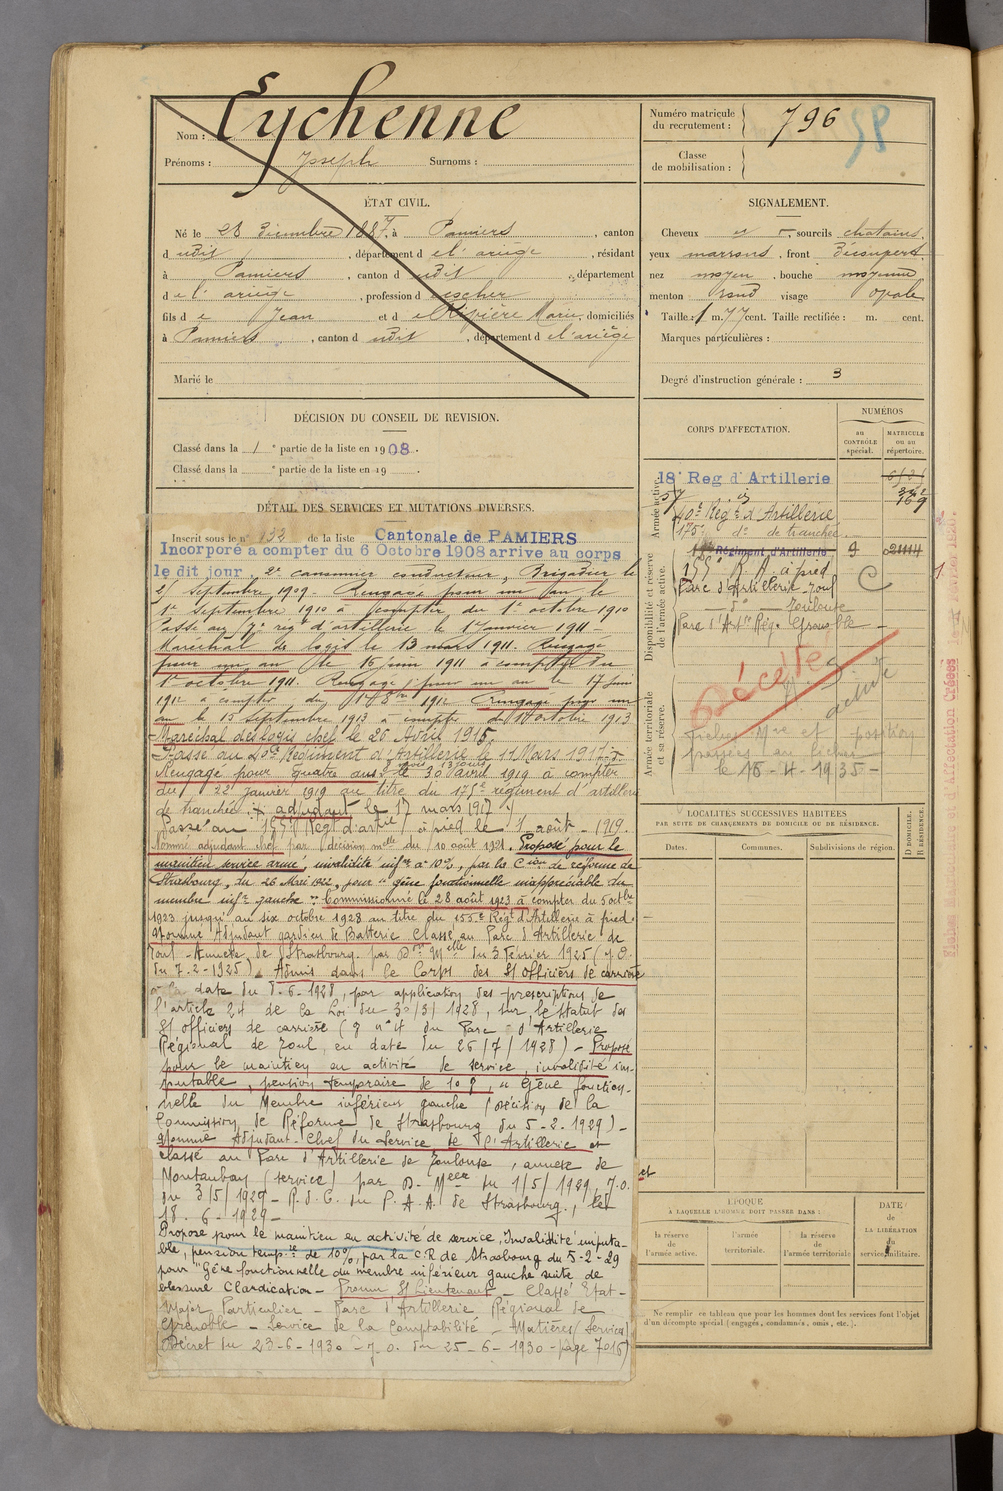 Nom : Eychenne
Prénoms : Joseph Surnoms :
Numéro matricule du recrutement : 796
58
Classe de mobilisation :
ÉTAT CIVIL.
Né le 28 Décembre 1887, à Pamiers, canton
d udit, département d e l'ariège, résidant
à Pamiers, canton d udit, département
d e l'ariège, profession d
fils d e Jean et d e Rivière Marie, domiciliés
à Pamiers, canton d udit, département d e l'ariège
Marié le
SIGNALEMENT.
Cheveux et sourcils chatains,
yeux marrons, front découvert,
nez moyen, bouche moyenne
menton rond visage ovale
Taille : 1 m. 77 cent. Taille rectifiée : m. cent.
Marques particulières :
Degré d'instruction générale : 3
DÉCISION DU CONSEIL DE REVISION.
Classé dans la 1 e partie de la liste en 1908.
Classé dans la e partie de la liste en 19
CORPS D'AFFECTATION.
NUMÉROS
au CONTRÔLE spécial.
MATRICULE ou au répertoire.
Armée active.
18e Reg d'Artillerie
57
40e Régt d'Artillerie
175e do de tranchée
Disponibilité et réserve de l'armée active.
Régiment d'Artillerie 9 2114
155e R. A. à pied
Parc d'Artillerie Toul C
do Toulouse
Parc d'Artie Rég. Grenoble
Armée territoriale et sa réserve.
Décédé
Fiches Mre et position
passées au fichier
le 16-4-1935-
DÉTAIL DES SERVICES ET MUTATIONS DIVERSES.
Inscrit sous le n° 132 de la liste Cantonale de PAMIERS
Incorporé a compter du 6 Octobre 1908 arrive au corps
le dit jour. 2e canonnier conducteur, Brigadier le
25 Septembre 1909. Rengagé pour un an le
1er Septembre 1910 à compter du 1er octobre 1910
Passé au 7e régt d'artillerie le 1er Janvier 1911 -
Maréchal des logis le 13 mars 1911. Rengagé
pour un an le 16 juin 1911 à compter du
1er octobre 1911. Rengagé pour un an le 17 Juin
1912 à compter du 1er 8bre 1912 Rengagé pour un
an le 15 Septembre 1913 à compter du 1er octobre 1913
Maréchal des logis chef le 26 Avril 1915.
Passé au 40e Régiment d'Artillerie le 11 Mars 1917.
Rengagé pour quatre ans le 30 avril 1919 à compter
du 22 janvier 1919 au titre du 175e régiment d'artillerie
de tranchée. adjudant le 17 mars 1917
Passé au 155e Régt d'artie à pied le 1 août - 1919.
Nommé adjudant chef par décision melle du 10 août 1921. Proposé pour le
maintien service armé, invalidité infre à 10%, par la Cion de réforme de
Strasbourg, du 26 Mai 1922, pour "gêne fonctionnelle inappréciable du
membre infr gauche". Commissionné le 28 août 1923 à compter du 5 octbre
1923 jusqu'au six octobre 1928 au titre du 155e Régt d'Artillerie à pied.
Nommé Adjudant gardien de Batterie Classé au Parc d'Artillerie de
Toul - Annexe de Strasbourg. par Don Melle du 3 février 1925 (J.O.
du 7-2-1925). Admis dans le Corps des S/officiers de carrière
à la date du 8-6-1928, par application des prescriptions de
l'article 24 de la Loi du 30/3/1928, sur le statut des
S/officiers de carrière ( n° 4 du Parc d'Artillerie
Régional de Toul, en date du 26/7/1928) - Proposé
pour le maintien en activité de service, invalidité im-
putable, pension temporaire de 10%, "Gêne fonction-
nelle du Membre inférieur gauche (Décision de la
Commission de Réforme de Strasbourg du 5-2-1929) -
Nommé Adjudant-Chef du Service de l'Artillerie et
classé au Parc d'Artillerie de Toulouse, annexe de
Montauban (service) par D. Melle du 1/5/1929, J.O.
du 3/5/1929 - R.d.C. du P.A.A. de Strasbourg, le
18-6-1929 -
Proposé pour le maintien en activité de service, Invalidité imputa-
ble, pension tempre de 10%, par la C.R de Strasbourg du 5-2-29
pour "Gêne fonctionnelle du membre inférieur gauche suite de
blessure Claudication - Promu S/Lieutenant - Classé Etat-
Major Particulier - Parc d'Artillerie Régional de
Grenoble - Service de la Comptabilité - Matières (Service)
(Décret du 23-6-1930 - J.O. du 25-6-1930 - page 7016)
LOCALITÉS SUCCESSIVES HABITÉES
PAR SUITE DE CHANGEMENTS DE DOMICILE OU DE RÉSIDENCE.
Dates. Communes. Subdivisions de région.
D DOMICILE. R RÉSIDENCE.
ÉPOQUE
À LAQUELLE L'HOMME DOIT PASSER DANS :
la réserve de l'armée active.
l'armée territoriale.
la réserve de l'armée territoriale
DATE de LA LIBÉRATION du service militaire.
Ne remplir ce tableau que pour les hommes dont les services font l'objet
d'un décompte spécial (engagés, condamnés, omis, etc.).